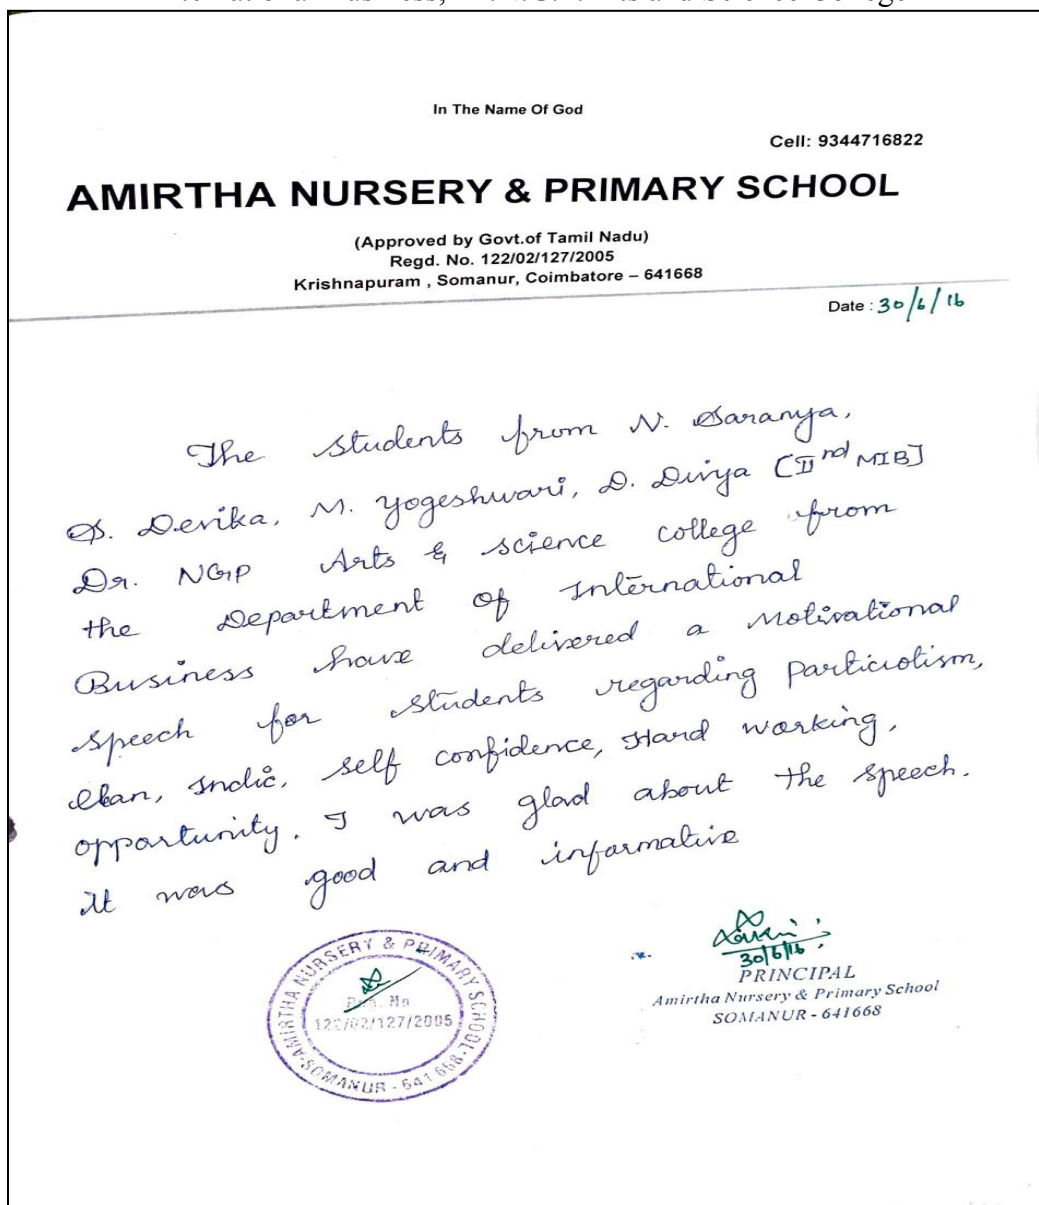 In The Name Of God
Cell: 9344716822
AMIRTHA NURSERY & PRIMARY SCHOOL
(Approved by Govt.of Tamil Nadu)
Regd. No. 122/02/127/2005
Krishnapuram , Somanur, Coimbatore – 641668
Date : 30/6/16
The students from N. Saranya,
S. Devika, M. Yogeshwari, D. Divya [IInd MIB]
Dr. NGP Arts & science college from
the Department of International
Business have delivered a Motivational
speech for students regarding particiotism,
clean, Indic, self confidence, Hard working,
opportunity. I was glad about the speech.
It was good and informative
AMIRTHA NURSERY & PRIMARY SCHOOL
Reg. No
122/02/127/2005
SOMANUR - 641 668
30/6/16
PRINCIPAL
Amirtha Nursery & Primary School
SOMANUR - 641668